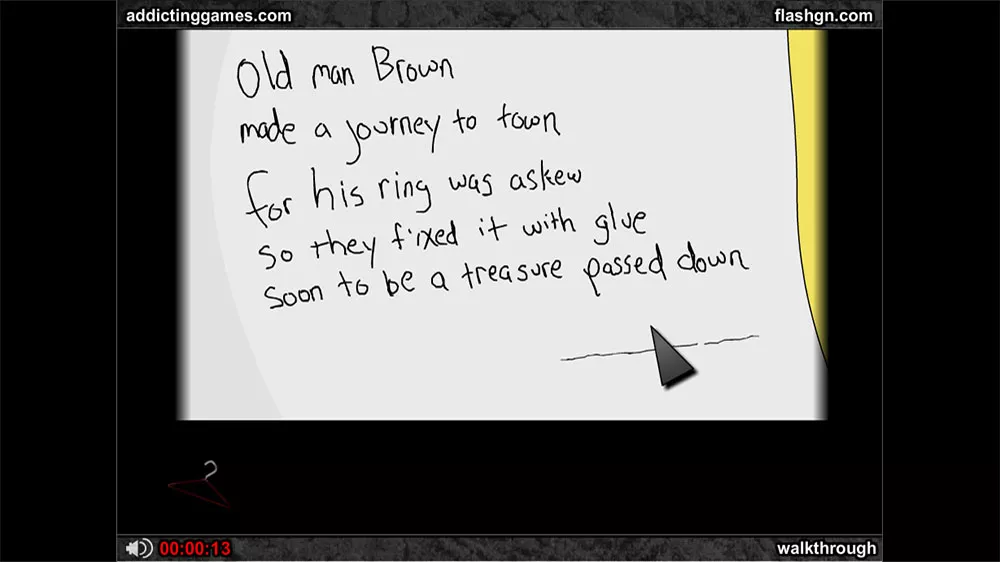 addictinggames.com
flashgn.com
Old man Brown
made a journey to town
for his ring was askew
so they fixed it with glue
soon to be a treasure passed down
00:00:13
walkthrough